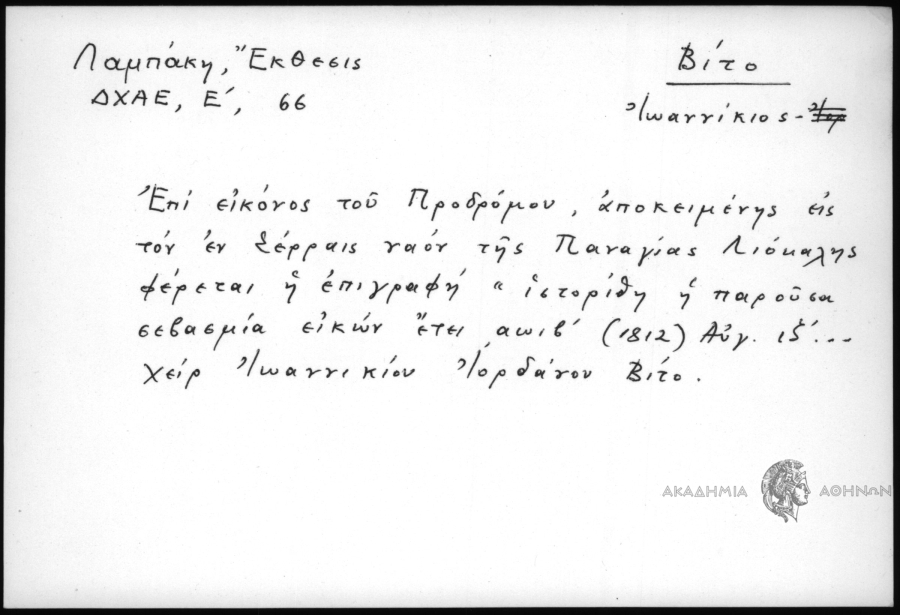 Λαμπάκη, Ἔκθεσις
ΔΧΑΕ, Ε΄, 66
Βίτο
Ἰωαννίκιος -
Ἐπί εἰκόνος τοῦ Προδρόμου, ἀποκειμένης εἰς
τόν ἐν Σέρραις ναόν τῆς Παναγίας Λιόκαλης
φέρεται ἡ ἐπιγραφή " ἱστορίθη ἡ παροῦσα
σεβασμία εἰκών ἔτει αωιβ΄ (1812) Αὐγ. ιξ΄...
χείρ Ἰωαννικίου Ἰορδάνου Βίτο.
ΑΚΑΔΗΜΙΑ ΑΘΗΝΩΝ